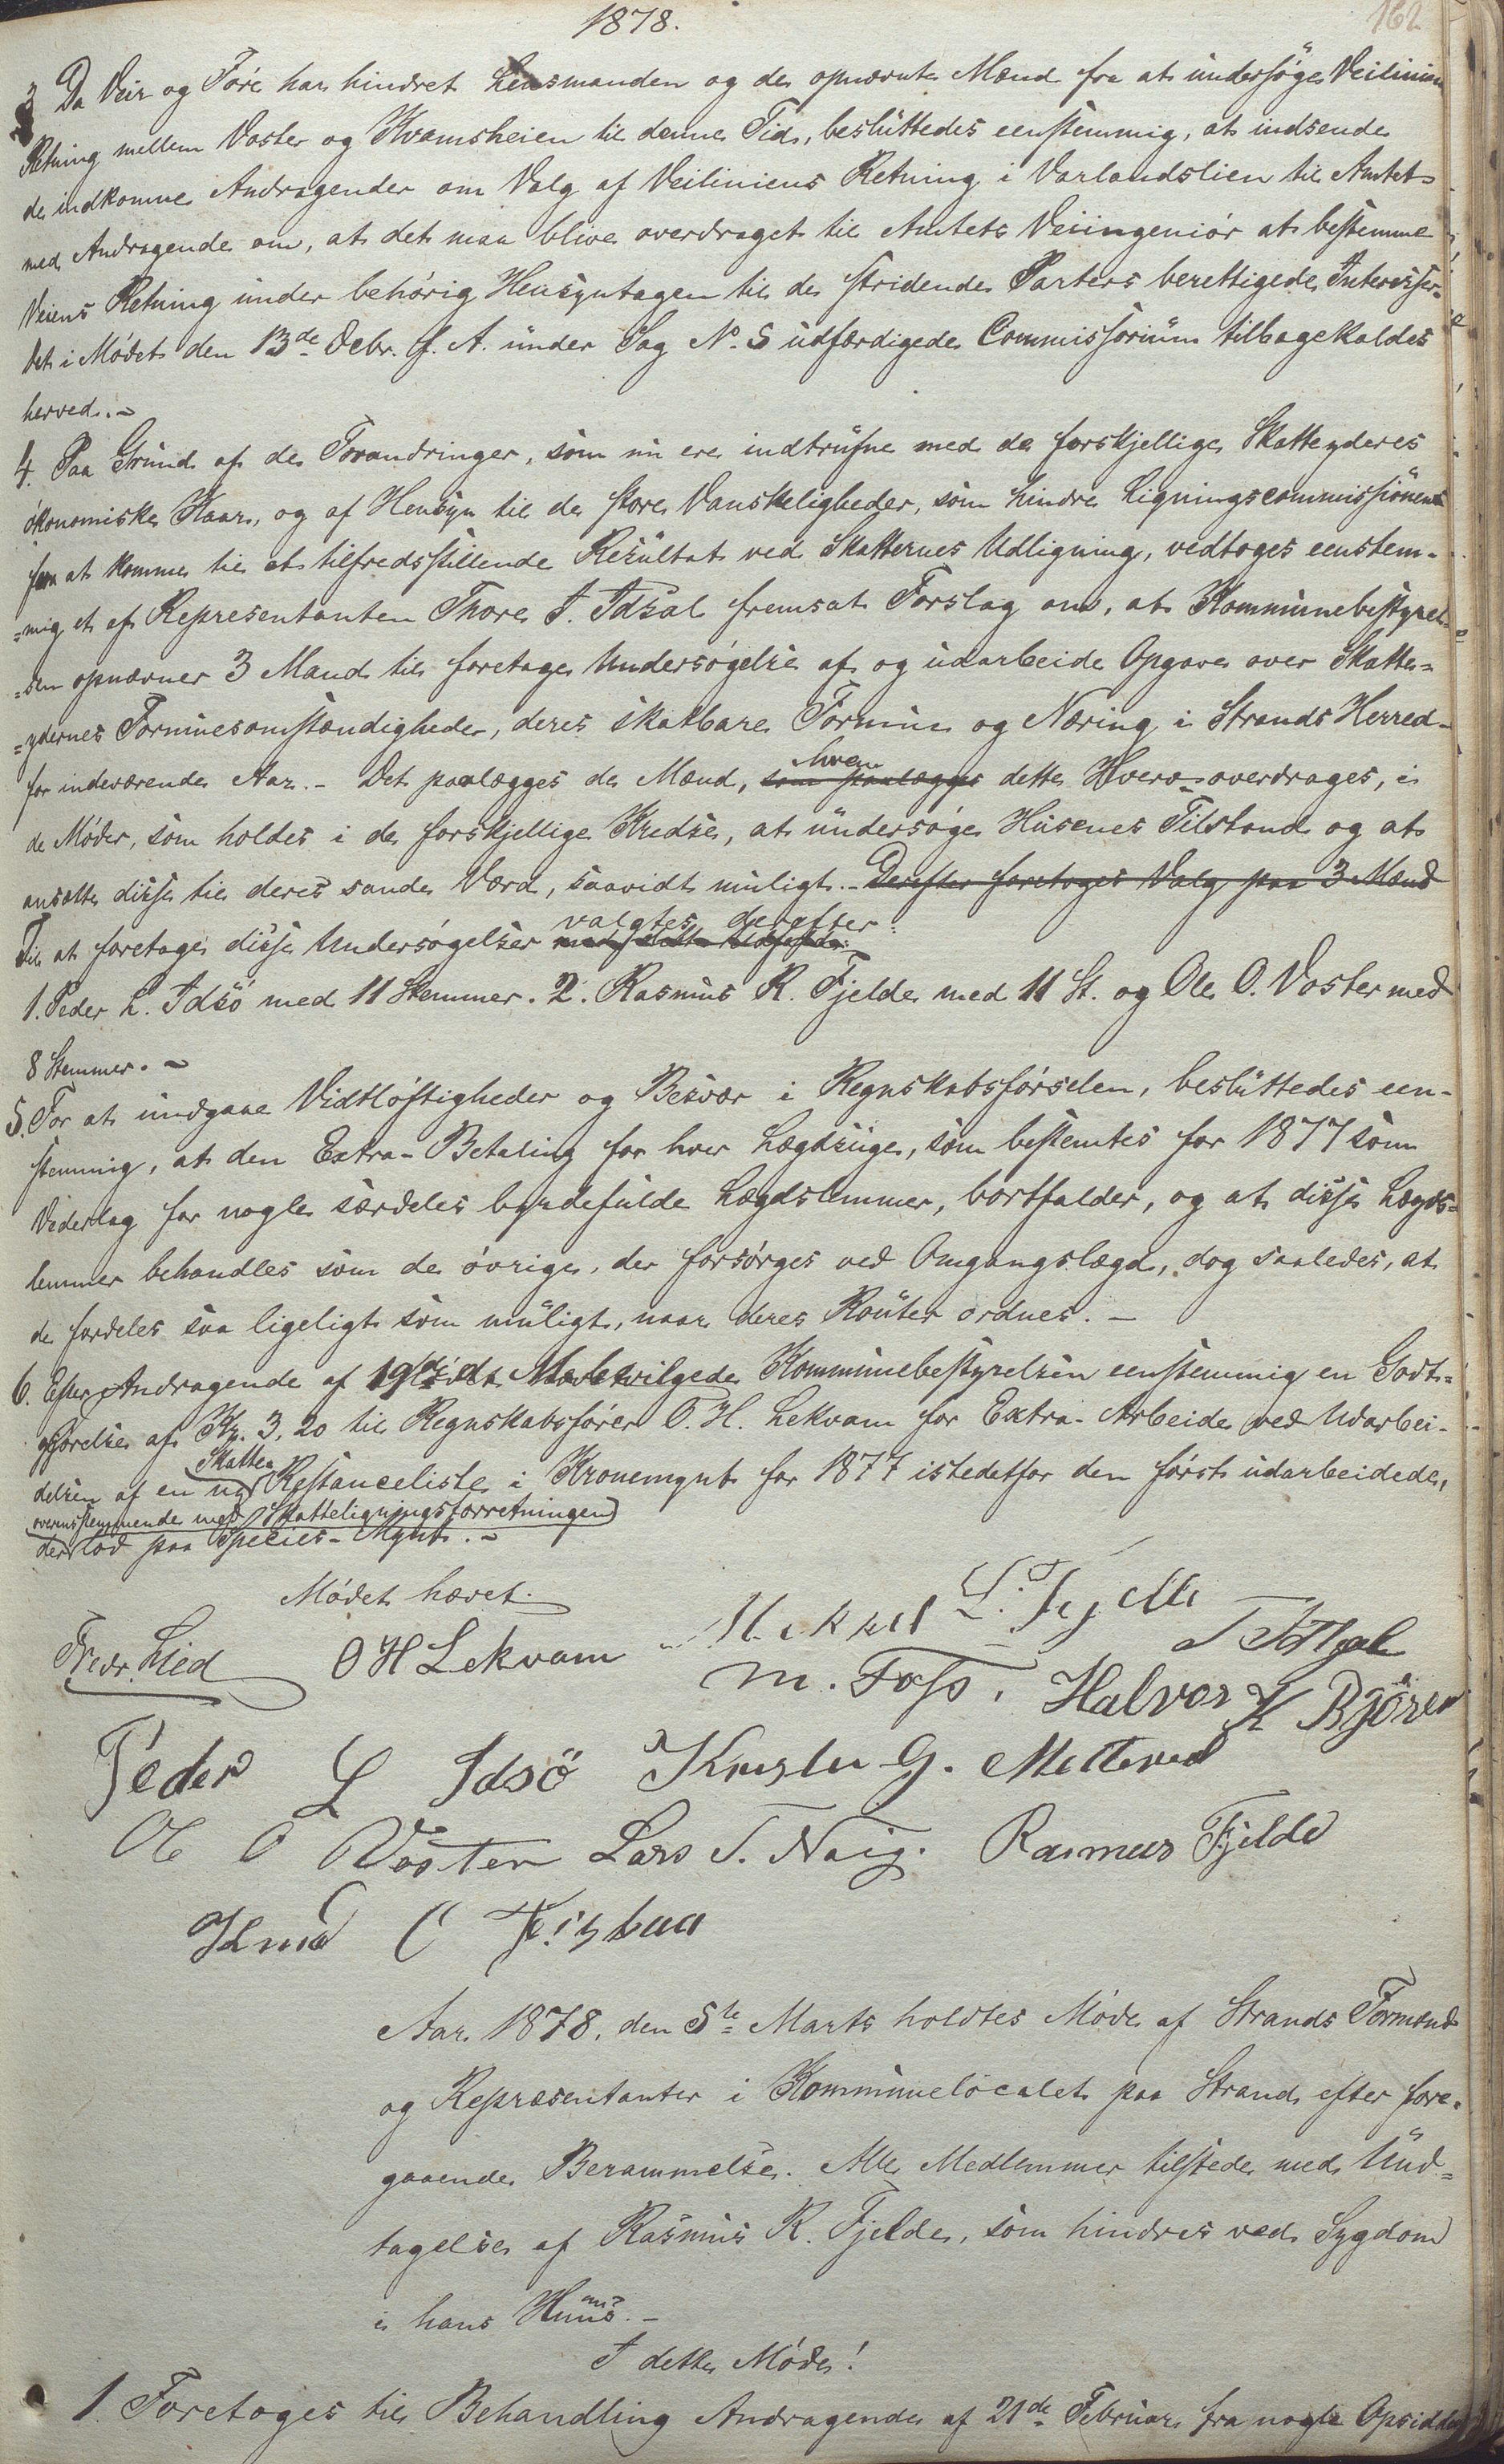 1878.
162
3 Da Veir og Føre har hindret Lensmanden og de opnævnte Mænd fra at undersøge Veilinien
Retning mellem Voster og Kvamsheien til denne Tid, besluttedes eenstemmig, at indsende
de indkomne Andragender om Valg af Veiliniens Retning i Vorlandslien til Amtet
med Andragende om, at det maa blive overdraget til Amtets Veiingeniør at bestemme
Veiens Retning under behørig Hensyntagen til de stridende Parters berettigede Interesser.
Det i Mødet den 13de Debr. f. A. under Sag No. 5 udfærdigede Commissorium tilbagekaldes
herved. -
4. Paa Grund af de Forandringer, som nu ere indtrufne med de forskjellige Skatteyderes
økonomiske Kaar, og af Hensyn til de store Vanskeligheder, som hindre Ligningscommissionen
fra at komme til et tilfredsstillende Resultat ved Skatternes Udligning, vedtoges eenstem-
=mig et af Representanten Thore T. Idsal fremsat Forslag om, at Kommunebestyrel-
=sen opnævner 3 Mand til foretage Undersøgelse af og udarbeide Opgave over Skatte=
=ydernes Formuesomstændigheder, deres skatbare Formue og Næring i Strands Herred
for indeværende Aar. - Det paalægges de Mænd, som paalægges hvem dette Hverv overdrages, i
de Møder, som holdes i de forskjellige Kredse, at undersøge Husenes Tilstand og at
ansætte disse til deres sande Værd, saavidt muligt. - Derefter foretoges Valg paa 3 Mænd
Til at foretage disse Undersøgelser valgtes derefter:
1. Peder L. Idsø med 11 Stemmer. 2. Rasmus R. Fjelde med 11 St. og Ole O. Voster med
8 Stemmer. -
5. For at undgaae Vidtløftigheder og Besvær i Regnskabsførselen, besluttedes een-
stemmig, at den Extra-Betaling for hver Lægdsuge, som bestemtes for 1877 som
Vederlag for nogle særdeles byrdefulde Lægdslemmer, bortfalder, og at disse Lægds=
lemmer behandles som de øvrige, der forsørges ved Omgangslægd, dog saaledes, at
de fordeles saa ligeligt som muligt, naar deres Router ordnes. -
6. Efter Andragende af 19de bevilgede Kommunebestyrelsen eenstemmig en Godt=
gjørelse af Kr. 3,20 til Regnskabsfører O. H. Lekvam for Extra-Arbeide ved Udarbei-
delsen af en ny Skatte Restanceliste i Kronemynt for 1877 istedetfor den først udarbeidede,
overensstemmende med Skatteligningsforretningen
der lød paa Species-Mynt. -
Mødet hævet.
Fredr. Lied O H Lekvam Mikkel L. Fjelde T T Idsal
M. Foss. Halvor K Bjøren
Peder L Idsö Krister G. Mettevad
Ole O Voster Lars T. Naig. Rasmus Fjelde
Knud C Tysbaa
Aar 1878, den 5te Marts holdtes Møde af Strands Formænd
og Repræsentanter i Kommunelocalet paa Strand efter fore-
gaaende Berammelse. Alle Medlemmer tilstede med Und=
tagelse af Rasmus R. Fjelde, som hindres ved Sygdom
i hans Huus. -
I dette Møde!
1 Foretoges til Behandling Andragende af 21de Februar fra nogle Opsiddere